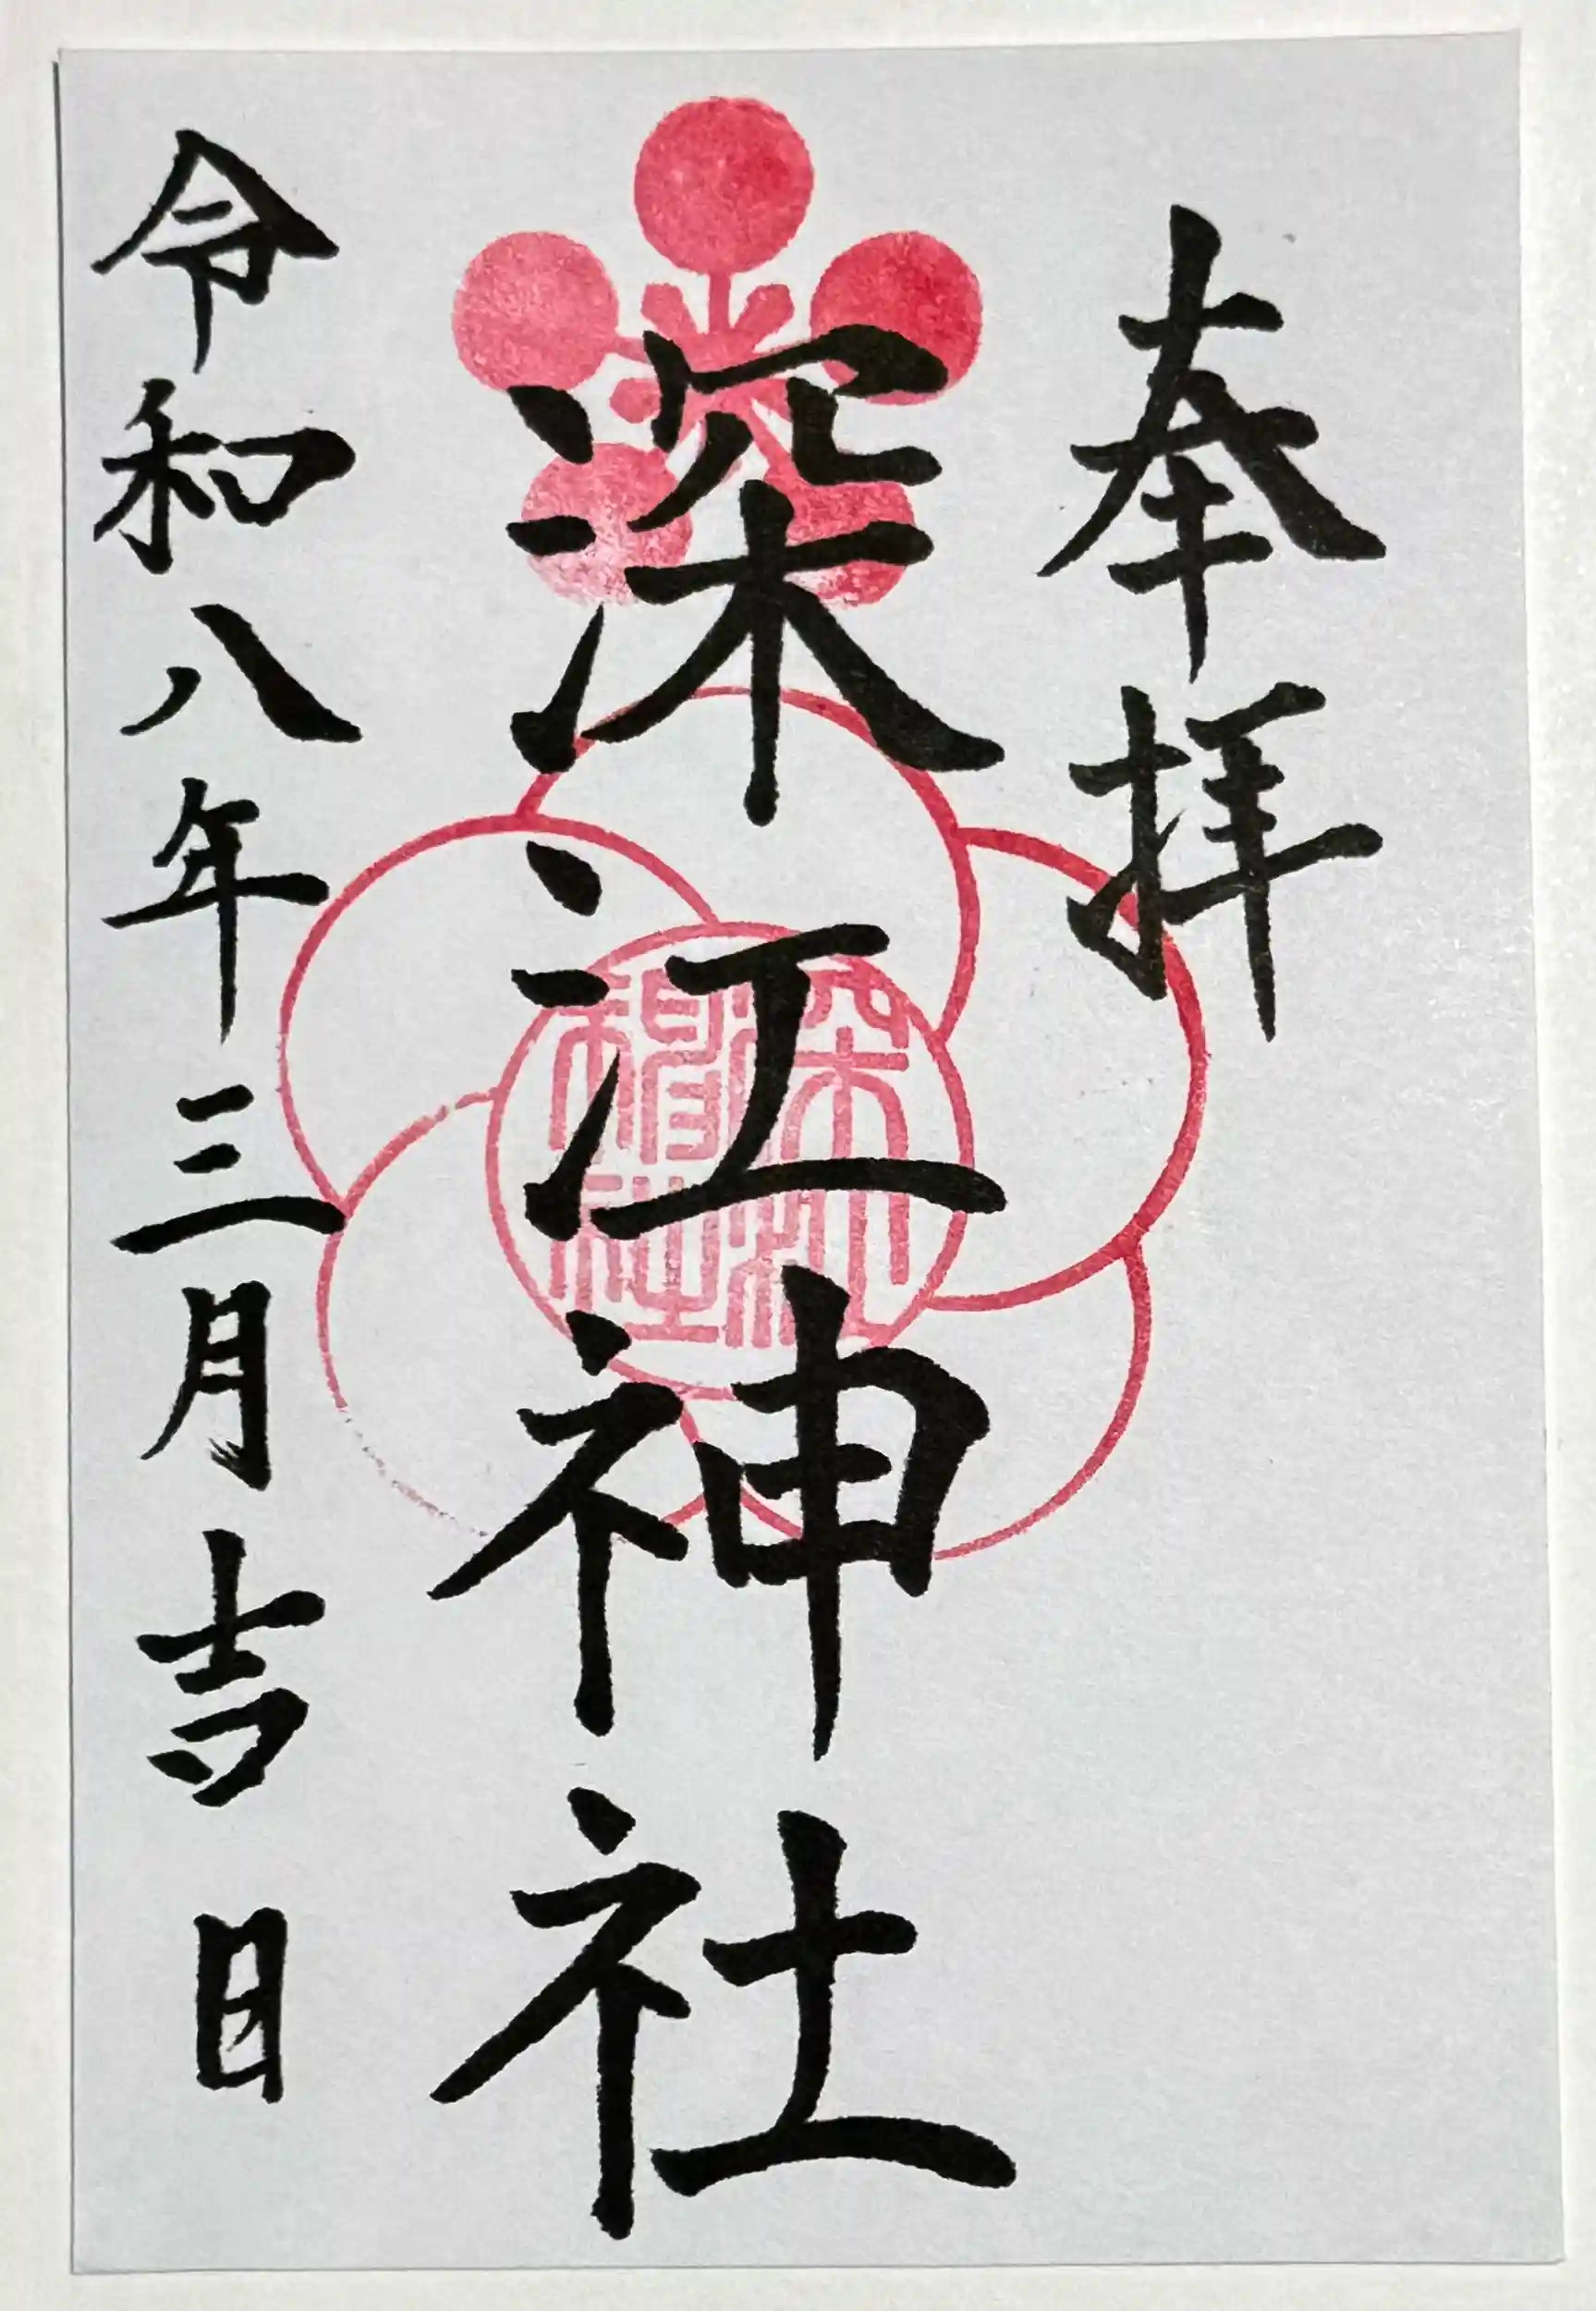 奉拝
深江神社
深江神社
令和八年三月吉日